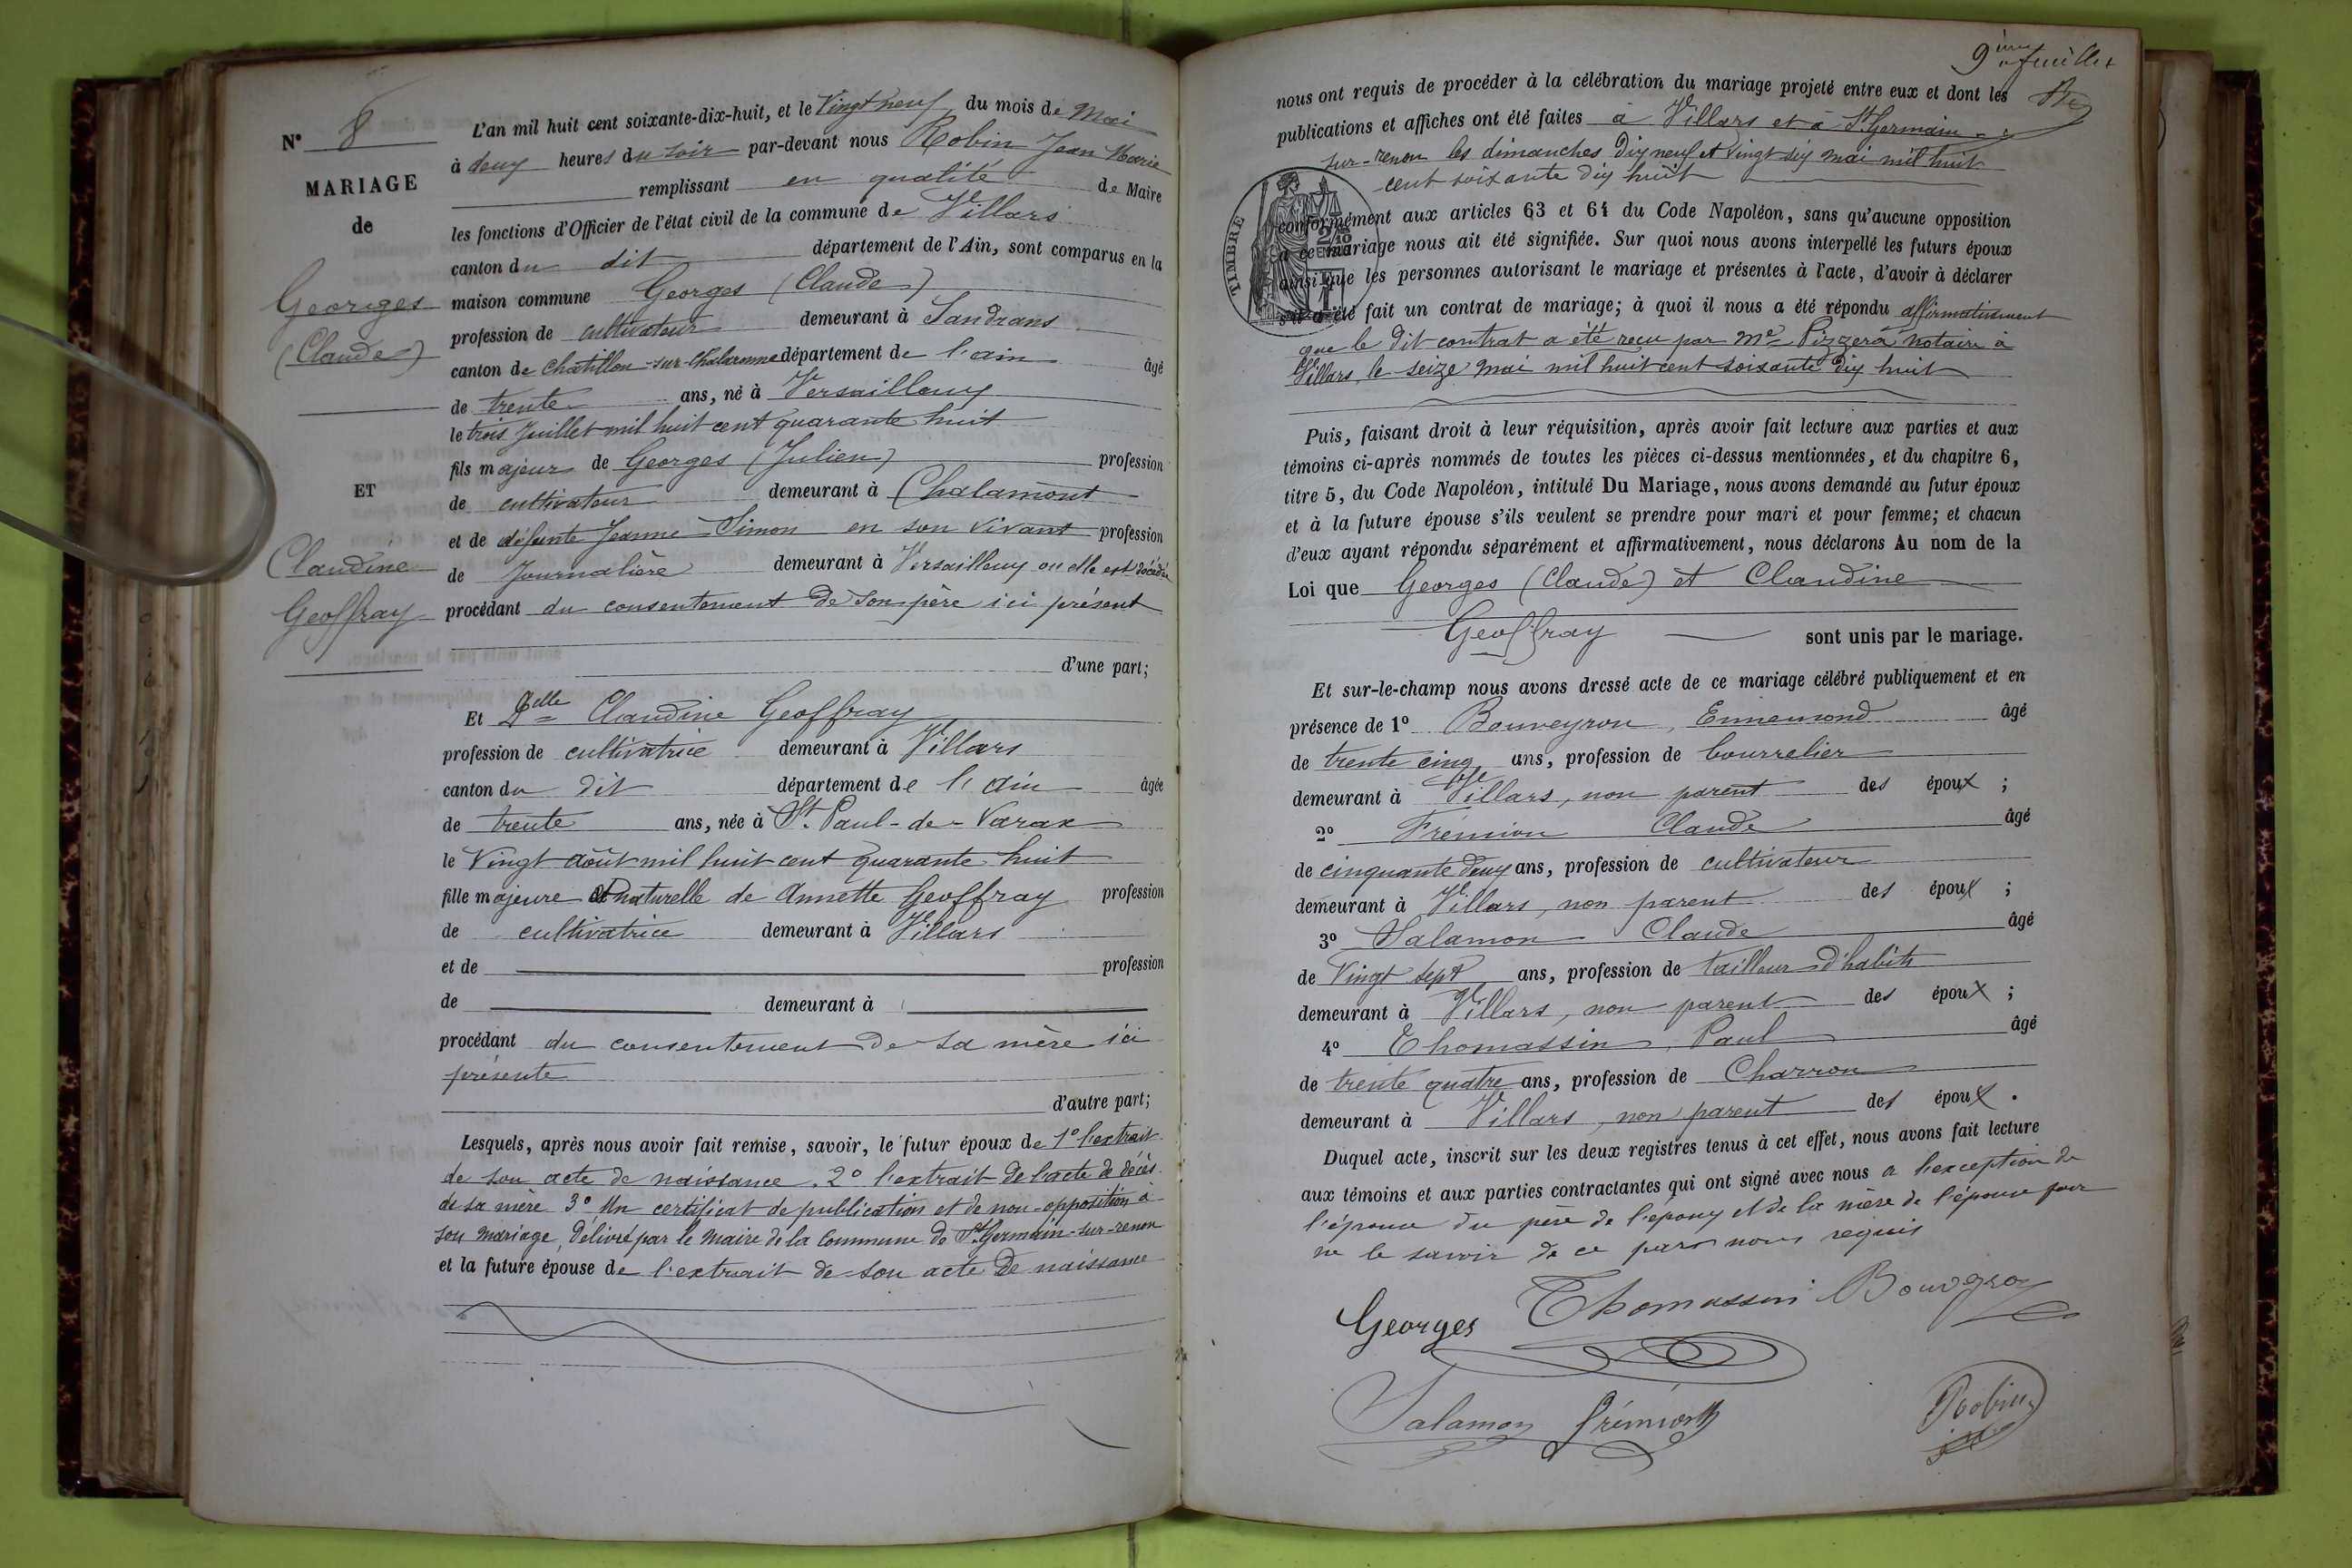 N° 8
MARIAGE
de
Georges
(Claude)
ET
Claudine
Geoffray
L'an mil huit cent soixante-dix-huit, et le Vingt neuf du mois de Mai
à deux heures du soir par-devant nous Robin Jean Marie
remplissant en qualité de Maire
les fonctions d'Officier de l'état civil de la commune de Villars
canton du dit département de l'Ain, sont comparus en la
maison commune Georges (Claude)
profession de cultivateur demeurant à Sandrans
canton de Chatillon-sur-Chalaronne département de l'ain âgé
de trente ans, né à Versailleux
le trois Juillet mil huit cent quarante huit
fils majeur de Georges (Julien) profession
de cultivateur demeurant à Chalamont
et de défunte Jeanne Simon en son vivant profession
de Journalière demeurant à Versailleux ou elle est décédée
procédant du consentement de son père ici présent
d'une part;
Et Delle Claudine Geoffray
profession de cultivatrice demeurant à Villars
canton du dit département de l'ain âgée
de trente ans, née à St Paul-de-Varax
le Vingt août mil huit cent quarante huit
fille majeure et naturelle de Annette Geoffray profession
de cultivatrice demeurant à Villars
et de profession
de demeurant à
procédant du consentement de sa mère ici
présente
d'autre part;
Lesquels, après nous avoir fait remise, savoir, le futur époux de 1° l'extrait
de son acte de naissance. 2° l'extrait de l'acte de décès
de sa mère 3° Un certificat de publication et de non-opposition à
son mariage, délivré par le Maire de la Commune de St Germain-sur-renon
et la future épouse de l'extrait de son acte de naissance
9ème feuillet
nous ont requis de procéder à la célébration du mariage projeté entre eux et dont les
publications et affiches ont été faites à Villars et à St Germain-
sur-renon les dimanches dix neuf et vingt six mai mil huit
cent soixante dix huit
TIMBRE
conformément aux articles 63 et 64 du Code Napoléon, sans qu'aucune opposition
à ce mariage nous ait été signifiée. Sur quoi nous avons interpellé les futurs époux
ainsi que les personnes autorisant le mariage et présentes à l'acte, d'avoir à déclarer
s'il a été fait un contrat de mariage; à quoi il nous a été répondu affirmativement
que le dit contrat a été reçu par Me Pizzera notaire à
Villars, le seize mai mil huit cent soixante dix huit
Puis, faisant droit à leur réquisition, après avoir fait lecture aux parties et aux
témoins ci-après nommés de toutes les pièces ci-dessus mentionnées, et du chapitre 6,
titre 5, du Code Napoléon, intitulé Du Mariage, nous avons demandé au futur époux
et à la future épouse s'ils veulent se prendre pour mari et pour femme; et chacun
d'eux ayant répondu séparément et affirmativement, nous déclarons Au nom de la
Loi que Georges (Claude) et Claudine
Geoffray sont unis par le mariage.
Et sur-le-champ nous avons dressé acte de ce mariage célébré publiquement et en
présence de 1° Bouveyron Ennemond âgé
de trente cinq ans, profession de bourrelier
demeurant à Villars, non parent des époux ;
2° Frémion Claude âgé
de cinquante deux ans, profession de cultivateur
demeurant à Villars, non parent des époux ;
3° Salamon Claude âgé
de Vingt sept ans, profession de tailleur d'habits
demeurant à Villars, non parent des époux ;
4° Thomassin Paul âgé
de trente quatre ans, profession de Charron
demeurant à Villars, non parent des époux .
Duquel acte, inscrit sur les deux registres tenus à cet effet, nous avons fait lecture
aux témoins et aux parties contractantes qui ont signé avec nous à l'exception de
l'épouse du père de l'époux et de la mère de l'épouse pour
ne le savoir de ce par nous requis
Georges Thomassin
Salamon Robin